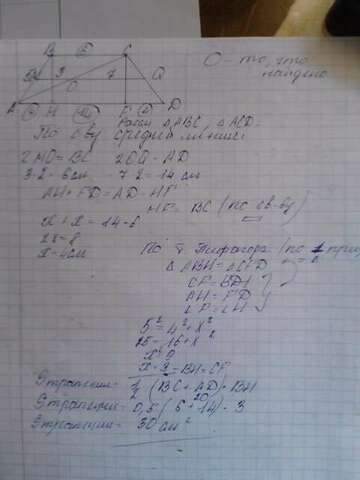 B 6 C
5 3 7 Q
O
A 4 H 14 F 4 D
О - то, что
найдено
Рассм △ABC, △ACD -
По св-ву средней линии
2 MO = BC 2OQ = AD
3·2 = 6см 7·2 = 14 см
AH + FD = AD - HF
HF = BC (по св-ву)
x + x = 14 - 6
2x = 8
x = 4см
По т. Пифагора (по 1 приз
△ ABH = △CFD
CF = BH
AH = FD
5² = 4² + x²
25 = 16 + x²
x² 9
x = 3 = BH = CF
Sтрапеции = 1/2 (BC + AD) · BH
Sтрапеции = 0,5 (6 + 14) · 3
20
Sтрапеции = 30 см²